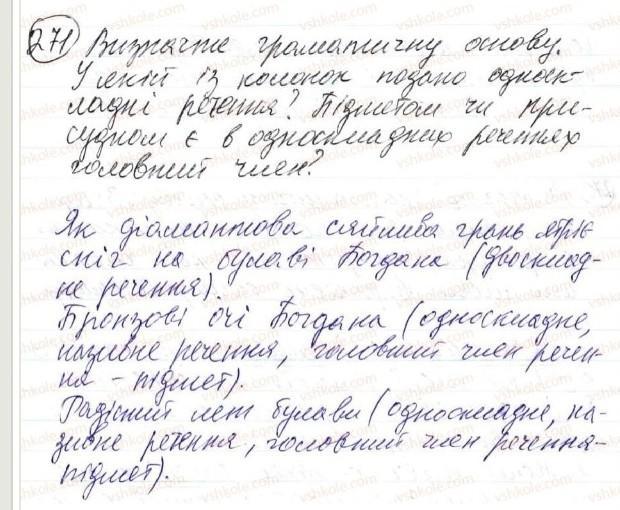 271 Визначте граматичну основу.
У якій із колонок подано односк-
ладні речення? Підметом чи при-
судком є в односкладних реченнях
головний член?
Як діамантова сяйлива грань мріє
сніг на булаві Богдана (двосклад-
не речення).
Бронзові очі Богдана (односкладне,
називне речення, головний член речен-
ня - підмет).
Радісний лет булави (односкладне, на-
зивне речення, головний член речення-
підмет).